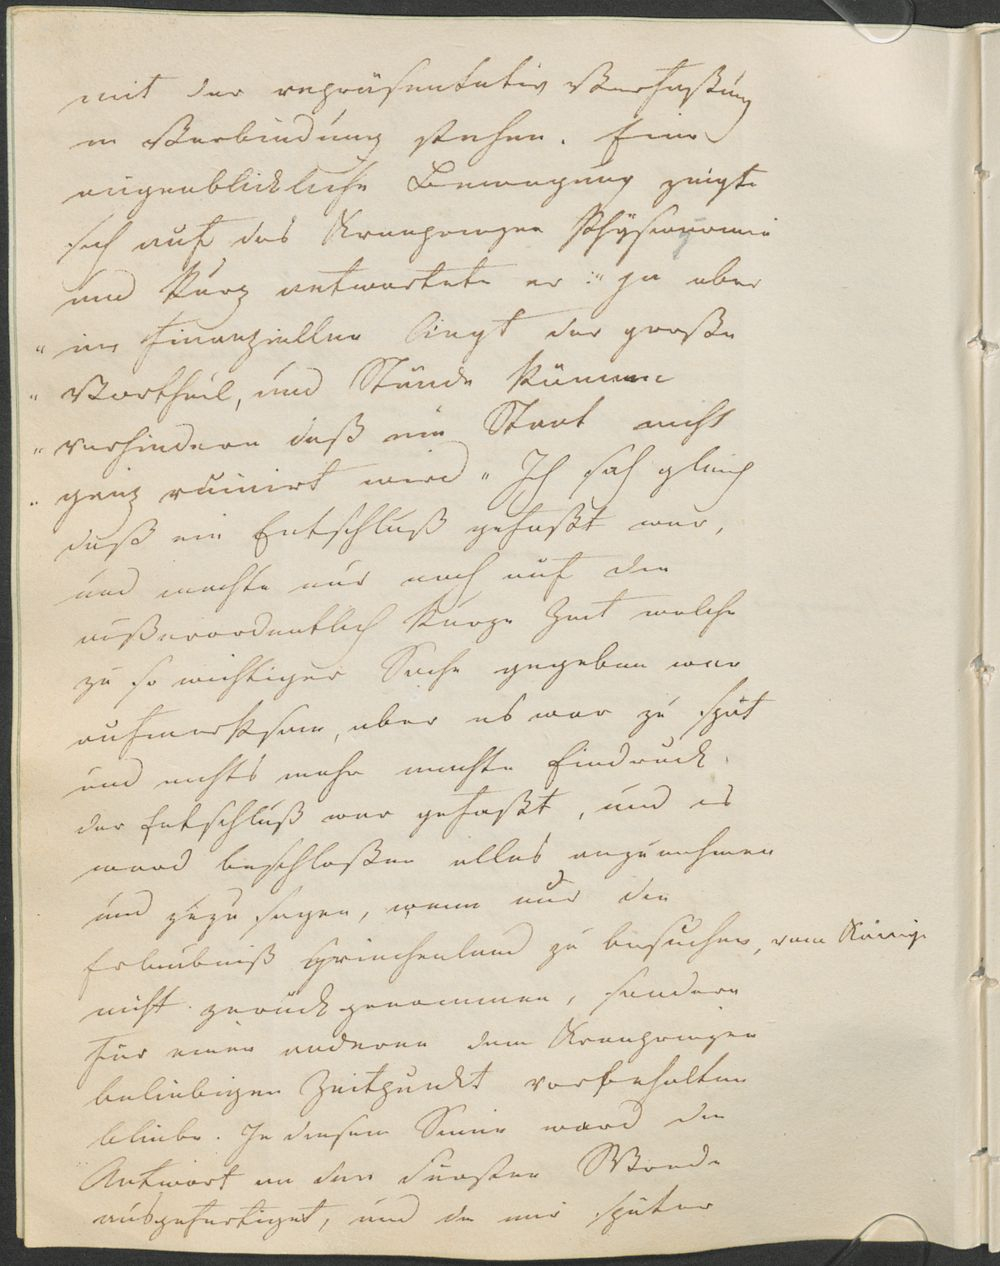 mit der repräsentativ Verfaßung
in Verbindung stehen. Eine
augenblickliche Bewegung zeigte
sich auf des Kronprinzen Physionomie
und kurz antwortete er: "ja aber
" im finanziellen liegt der große
" Vortheil, und Stände können
" verhindern daß ein Staat nicht
" ganz ruinirt wird " Ich sah gleich
daß ein Entschluß gefaßt war,
und machte nur noch auf die
außerordentlich kurze Zeit welche
zu so wichtiger Sache gegeben war
aufmerksam, aber es war zu spät
und nichts mehr machte Eindruck.
der Entschluß war gefaßt, und es
ward beschloßen alles anzunehmen
und zuzusagen, wenn nur die
Erlaubniß Griechenland zu besuchen, vom König
nicht zurück genommen, sondern
für einen anderen dem Kronprinzen
beliebigen Zeitpunkt vorbehalten
bliebe. In diesem Sinne ward die
Antwort an den Fürsten Wrede
ausgefertiget, und da mir später